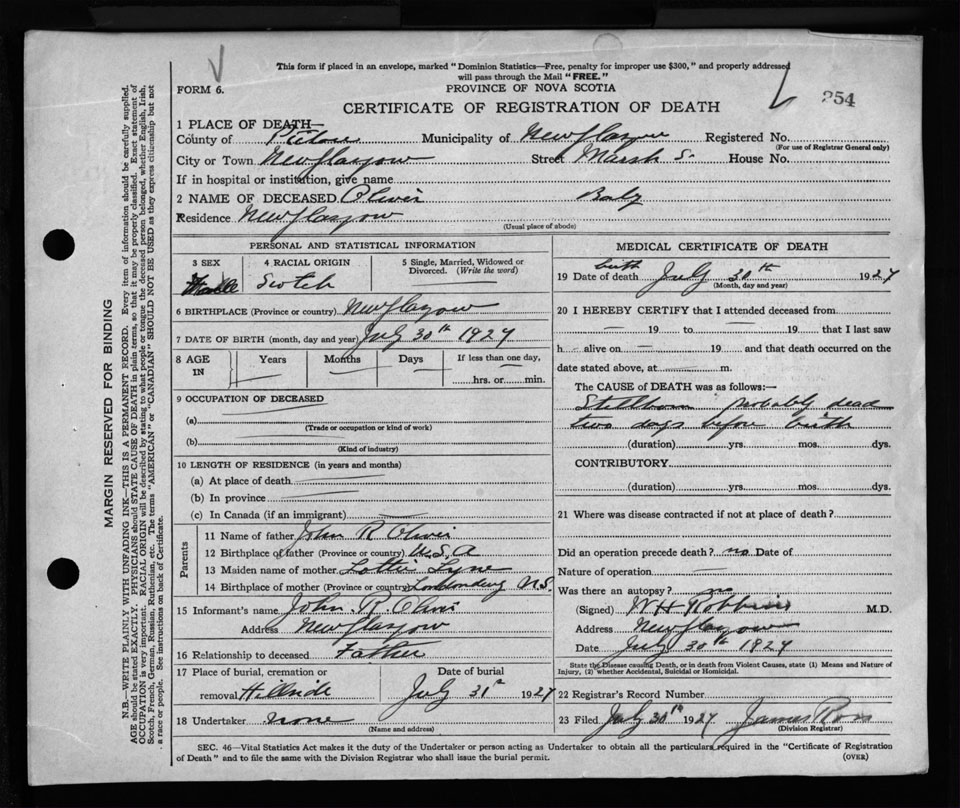 This form if placed in an envelope, marked " Dominion Statistics—Free, penalty for improper use $300," and properly addressed
will pass through the Mail "FREE."
FORM 6.
PROVINCE OF NOVA SCOTIA
CERTIFICATE OF REGISTRATION OF DEATH
254
1 PLACE OF DEATH—
County of Pictou Municipality of New Glasgow Registered No.
(For use of Registrar General only)
City or Town New Glasgow Street Marsh S. House No.
If in hospital or institution, give name
2 NAME OF DECEASED Oliver Baby
Residence New Glasgow
(Usual place of abode)
PERSONAL AND STATISTICAL INFORMATION
3 SEX 4 RACIAL ORIGIN 5 Single, Married, Widowed or
Divorced. (Write the word)
Scotch
6 BIRTHPLACE (Province or country) New Glasgow
7 DATE OF BIRTH (month, day and year) July 30th 1927
8 AGE IN Years Months Days If less than one day,
hrs. or min.
9 OCCUPATION OF DECEASED
(a)
(Trade or occupation or kind of work)
(b)
(Kind of industry)
10 LENGTH OF RESIDENCE (in years and months)
(a) At place of death
(b) In province
(c) In Canada (if an immigrant)
Parents
11 Name of father John R Oliver
12 Birthplace of father (Province or country) U.S.A
13 Maiden name of mother Lottie
14 Birthplace of mother (Province or Country) Londonderry N.S.
15 Informant's name John R Oliver
Address New Glasgow
16 Relationship to deceased Father
17 Place of burial, cremation or Date of burial
removal Hillside July 31st 1927
18 Undertaker none
(Name and address)
MEDICAL CERTIFICATE OF DEATH
birth
19 Date of death July 30th 1927
(Month, day and year)
20 I HEREBY CERTIFY that I attended deceased from
— 19 to — 19 that I last saw
h alive on — 19 and that death occurred on the
date stated above, at m.
The CAUSE of DEATH was as follows:—
Stillborn probably dead
two days before birth
(duration) yrs. mos. dys.
CONTRIBUTORY
(duration) yrs. mos. dys.
21 Where was disease contracted if not at place of death?
Did an operation precede death? no Date of
Nature of operation
Was there an autopsy? no
(Signed) W H Robbins M.D.
Address New Glasgow
Date July 30th 1927
State the Disease causing Death, or in death from Violent Causes, state (1) Means and Nature of
Injury, (2) whether Accidental, Suicidal or Homicidal.
22 Registrar's Record Number
23 Filed July 30th 1927 James Ross
(Division Registrar)
SEC. 46—Vital Statistics Act makes it the duty of the Undertaker or person acting as Undertaker to obtain all the particulars required in the "Certificate of Registration
of Death" and to file the same with the Division Registrar who shall issue the burial permit.
(OVER)
MARGIN RESERVED FOR BINDING
N.B.—WRITE PLAINLY WITH UNFADING INK—THIS IS A PERMANENT RECORD. Every item of information should be carefully supplied.
AGE should be stated EXACTLY. PHYSICIANS should STATE CAUSE OF DEATH in plain terms, so that it may be properly classified. Exact statement of
OCCUPATION is very important. RACIAL ORIGIN will be described by stating to what people or tongue the deceased person belonged, whether English, Irish,
Scotch, French, German, Russian, Ruthenian, etc. The terms "AMERICAN" or "CANADIAN" SHOULD NOT BE USED as they express citizenship but not
a race or people. See instructions on back of Certificate.